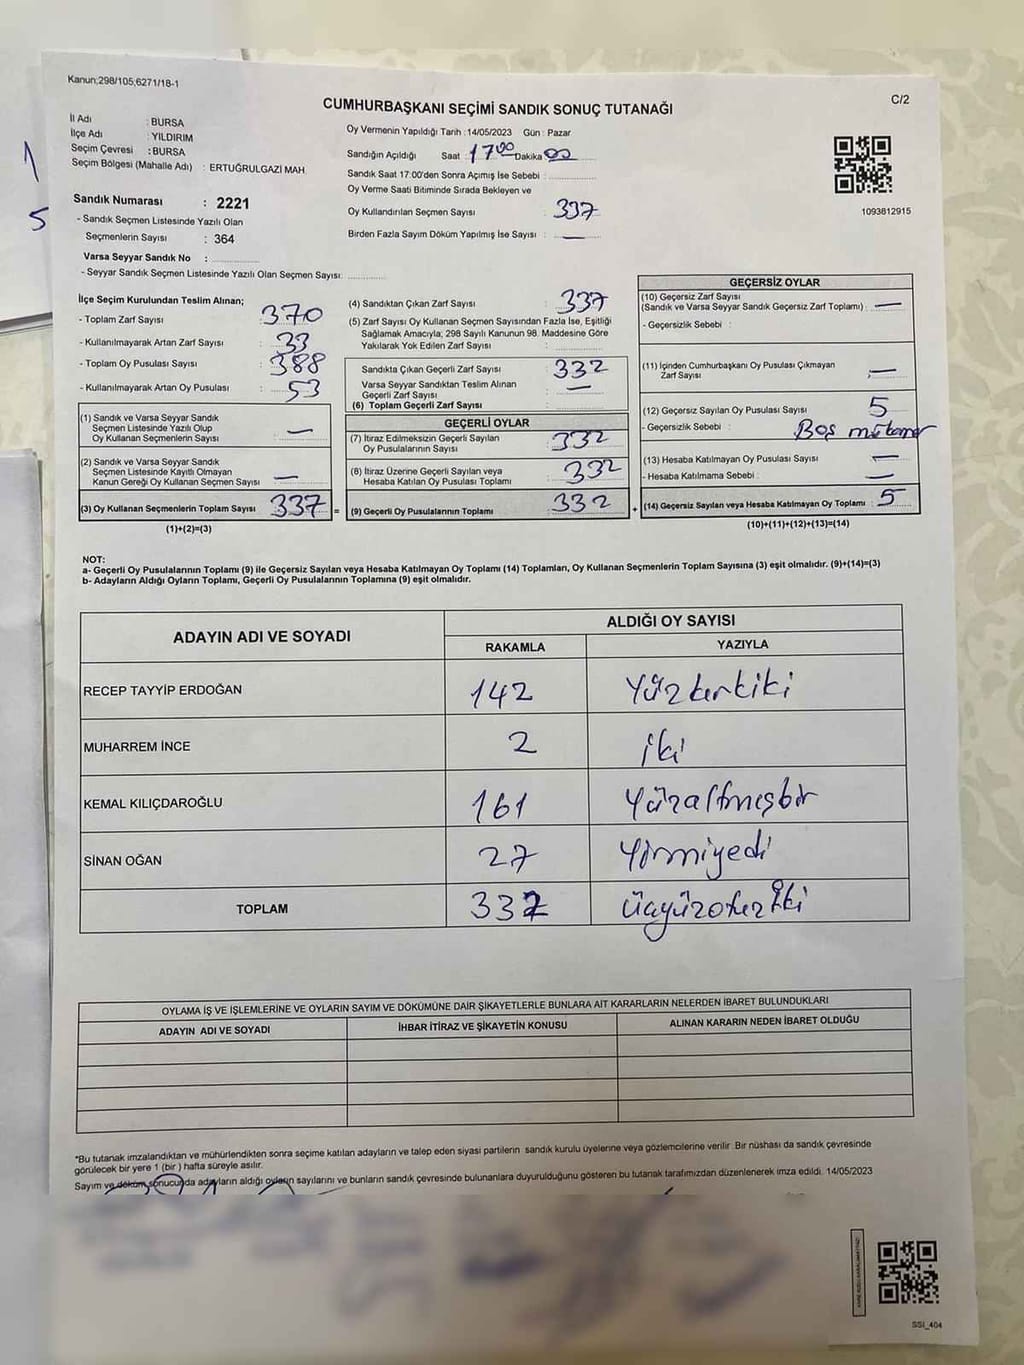 Kanun;298/105,6271/18-1
CUMHURBAŞKANI SEÇİMİ SANDIK SONUÇ TUTANAĞI
C/2
İl Adı : BURSA
İlçe Adı : YILDIRIM
Seçim Çevresi : BURSA
Seçim Bölgesi (Mahalle Adı) : ERTUĞRULGAZİ MAH.
Sandık Numarası : 2221
- Sandık Seçmen Listesinde Yazılı Olan
Seçmenlerin Sayısı : 364
Varsa Seyyar Sandık No :
- Seyyar Sandık Seçmen Listesinde Yazılı Olan Seçmen Sayısı:
Oy Vermenin Yapıldığı Tarih :14/05/2023 Gün : Pazar
Sandığın Açıldığı Saat : 17 00 Dakika 00
Sandık Saat 17:00'den Sonra Açımış İse Sebebi :
Oy Verme Saati Bitiminde Sırada Bekleyen ve
Oy Kullandırılan Seçmen Sayısı : 337
Birden Fazla Sayım Döküm Yapılmış İse Sayısı : —
1093812915
1
5
İlçe Seçim Kurulundan Teslim Alınan;
- Toplam Zarf Sayısı : 370
- Kullanılmayarak Artan Zarf Sayısı : 33
- Toplam Oy Pusulası Sayısı : 388
- Kullanılmayarak Artan Oy Pusulası : 53
(1) Sandık ve Varsa Seyyar Sandık
Seçmen Listesinde Yazılı Olup
Oy Kullanan Seçmenlerin Sayısı : —
(2) Sandık ve Varsa Seyyar Sandık
Seçmen Listesinde Kayıtlı Olmayan
Kanun Gereği Oy Kullanan Seçmen Sayısı : —
(3) Oy Kullanan Seçmenlerin Toplam Sayısı : 337 =
(1)+(2)=(3)
(4) Sandıktan Çıkan Zarf Sayısı : 337
(5) Zarf Sayısı Oy Kullanan Seçmen Sayısından Fazla İse, Eşitliği
Sağlamak Amacıyla; 298 Sayılı Kanunun 98. Maddesine Göre
Yakılarak Yok Edilen Zarf Sayısı :
Sandıkta Çıkan Geçerli Zarf Sayısı : 332
Varsa Seyyar Sandıktan Teslim Alınan
Geçerli Zarf Sayısı : —
(6) Toplam Geçerli Zarf Sayısı :
GEÇERLİ OYLAR
(7) İtiraz Edilmeksizin Geçerli Sayılan
Oy Pusulalarının Sayısı : 332
(8) İtiraz Üzerine Geçerli Sayılan veya
Hesaba Katılan Oy Pusulası Toplamı : 332
(9) Geçerli Oy Pusulalarının Toplamı : 332 +
GEÇERSİZ OYLAR
(10) Geçersiz Zarf Sayısı
(Sandık ve Varsa Seyyar Sandık Geçersiz Zarf Toplamı) : —
- Geçersizlik Sebebi :
(11) İçinden Cumhurbaşkanı Oy Pusulası Çıkmayan
Zarf Sayısı : —
(12) Geçersiz Sayılan Oy Pusulası Sayısı : 5
- Geçersizlik Sebebi : Boş
(13) Hesaba Katılmayan Oy Pusulası Sayısı : —
- Hesaba Katılmama Sebebi : —
(14) Geçersiz Sayılan veya Hesaba Katılmayan Oy Toplamı : 5
(10)+(11)+(12)+(13)=(14)
NOT:
a- Geçerli Oy Pusulalarının Toplamı (9) ile Geçersiz Sayılan veya Hesaba Katılmayan Oy Toplamı (14) Toplamları, Oy Kullanan Seçmenlerin Toplam Sayısına (3) eşit olmalıdır. (9)+(14)=(3)
b- Adayların Aldığı Oyların Toplamı, Geçerli Oy Pusulalarının Toplamına (9) eşit olmalıdır.
ADAYIN ADI VE SOYADI
ALDIĞI OY SAYISI
RAKAMLA YAZIYLA
RECEP TAYYİP ERDOĞAN 142 Yüzkırkiki
MUHARREM İNCE 2 iki
KEMAL KILIÇDAROĞLU 161 Yüzaltmışbir
SİNAN OĞAN 27 Yirmiyedi
TOPLAM 332 üçyüzotuziki
OYLAMA İŞ VE İŞLEMLERİNE VE OYLARIN SAYIM VE DÖKÜMÜNE DAİR ŞİKAYETLERLE BUNLARA AİT KARARLARIN NELERDEN İBARET BULUNDUKLARI
ADAYIN ADI VE SOYADI İHBAR İTİRAZ VE ŞİKAYETİN KONUSU ALINAN KARARIN NEDEN İBARET OLDUĞU
*Bu tutanak imzalandıktan ve mühürlendikten sonra seçime katılan adayların ve talep eden siyasi partilerin sandık kurulu üyelerine veya gözlemcilerine verilir. Bir nüshası da sandık çevresinde
görülecek bir yere 1 (bir ) hafta süreyle asılır.
Sayım ve döküm sonucunda adayların aldığı oyların sayılarını ve bunların sandık çevresinde bulunanlara duyurulduğunu gösteren bu tutanak tarafımızdan düzenlenerek imza edildi. 14/05/2023
SSI_404